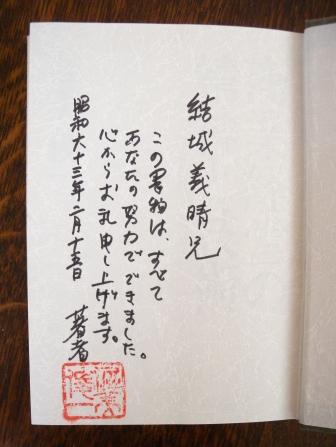 結城義晴兄
この書物は、すべて
あなたの努力でできました。
心からお礼申し上げます。
昭和六十三年二月十五日
著者